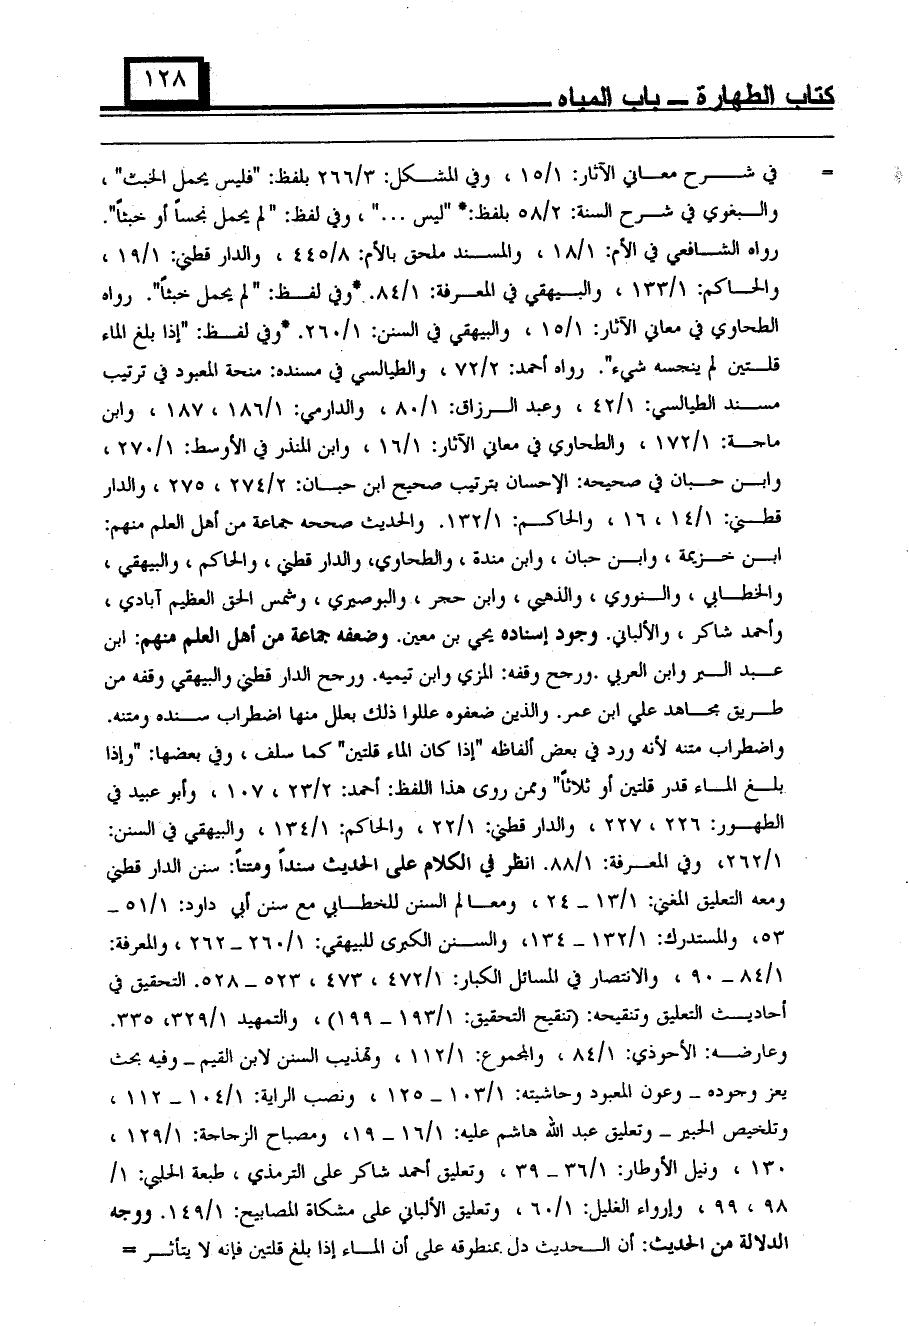 ١٢٨
كتاب الطهارة ـ باب المياه
= في شرح معاني الآثار: ١٥/١ ، وفي المشكل: ٢٦٦/٣ بلفظ: "فليس يحمل الخبث" ،
والبغوي في شرح السنة: ٥٨/٢ بلفظ:* "ليس ..." ، وفي لفظ: "لم يحمل نجساً أو خبثاً".
رواه الشافعي في الأم: ١٨/١ ، والمسند ملحق بالأم: ٤٤٥/٨ ، والدار قطني: ١٩/١ ،
والحاكم: ١٣٣/١ ، والبيهقي في المعرفة: ٨٤/١. *وفي لفظ: "لم يحمل خبثاً". رواه
الطحاوي في معاني الآثار: ١٥/١ ، والبيهقي في السنن: ٢٦٠/١. *وفي لفظ: "إذا بلغ الماء
قلتين لم ينجسه شيء". رواه أحمد: ٧٢/٢ ، والطيالسي في مسنده: منحة المعبود في ترتيب
مسند الطيالسي: ٤٢/١ ، وعبد الرزاق: ٨٠/١ ، والدارمي: ١٨٦/١ ، ١٨٧ ، وابن
ماجة: ١٧٢/١ ، والطحاوي في معاني الآثار: ١٦/١ ، وابن المنذر في الأوسط: ٢٧٠/١ ،
وابن حبان في صحيحه: الإحسان بترتيب صحيح ابن حبان: ٢٧٤/٢ ، ٢٧٥ ، والدار
قطني: ١٤/١ ، ١٦ ، والحاكم: ١٣٢/١. والحديث صححه جماعة من أهل العلم منهم:
ابن خزيمة ، وابن حبان ، وابن مندة ، والطحاوي، والدار قطني ، والحاكم ، والبيهقي ،
والخطابي ، والنووي ، والذهبي ، وابن حجر ، والبوصيري ، وشمس الحق العظيم آبادي ،
وأحمد شاكر ، والألباني. وجود إسناده يحي بن معين. وضعفه جماعة من أهل العلم منهم: ابن
عبد البر وابن العربي .ورجح وقفه: المزي وابن تيميه. ورجح الدار قطني والبيهقي وقفه من
طريق مجاهد علي ابن عمر. والذين ضعفوه عللوا ذلك بعلل منها اضطراب سنده ومتنه.
واضطراب متنه لأنه ورد في بعض ألفاظه "إذا كان الماء قلتين" كما سلف ، وفي بعضها: "وإذا
بلغ الماء قدر قلتين أو ثلاثاً" وممن روى هذا اللفظ: أحمد: ٢٣/٢ ، ١٠٧ ، وأبو عبيد في
الطهور: ٢٢٦ ، ٢٢٧ ، والدار قطني: ٢٢/١ ، والحاكم: ١٣٤/١ ، والبيهقي في السنن:
٢٦٢/١، وفي المعرفة: ٨٨/١. انظر في الكلام على الحديث سنداً ومتناً: سنن الدار قطني
ومعه التعليق المغني: ١٣/١ ـ ٢٤ ، ومعالم السنن للخطابي مع سنن أبي داود: ٥١/١ ـ
٥٣، والمستدرك: ١٣٢/١ ـ ١٣٤، والسنن الكبرى للبيهقي: ٢٦٠/١ ـ ٢٦٢ ، والمعرفة:
٨٤/١ ـ ٩٠ ، والانتصار في المسائل الكبار: ٤٧٢/١ ، ٤٧٣ ، ٥٢٣ ـ ٥٢٨. التحقيق في
أحاديث التعليق وتنقيحه: (تنقيح التحقيق: ١٩٣/١ ـ ١٩٩) ، والتمهيد ٣٢٩/١، ٣٣٥.
وعارضه: الأحوذي: ٨٤/١ ، والمجموع: ١١٢/١ ، وتهذيب السنن لابن القيم ـ وفيه بحث
يعز وجوده ـ وعون المعبود وحاشيته: ١٠٣/١ ـ ١٢٥ ، ونصب الراية: ١٠٤/١ ـ ١١٢ ،
وتلخيص الحبير ـ وتعليق عبد الله هاشم عليه: ١٦/١ ـ ١٩، ومصباح الزجاجة: ١٢٩/١ ،
١٣٠ ، ونيل الأوطار: ٣٦/١ ـ ٣٩ ، وتعليق أحمد شاكر على الترمذي ، طبعة الحلبي: ١/
٩٨ ، ٩٩ ، وإرواء الغليل: ٦٠/١ ، وتعليق الألباني على مشكاة المصابيح: ١٤٩/١. ووجه
الدلالة من الحديث: أن الحديث دل بمنطوقه على أن الماء إذا بلغ قلتين فإنه لا يتأثر =